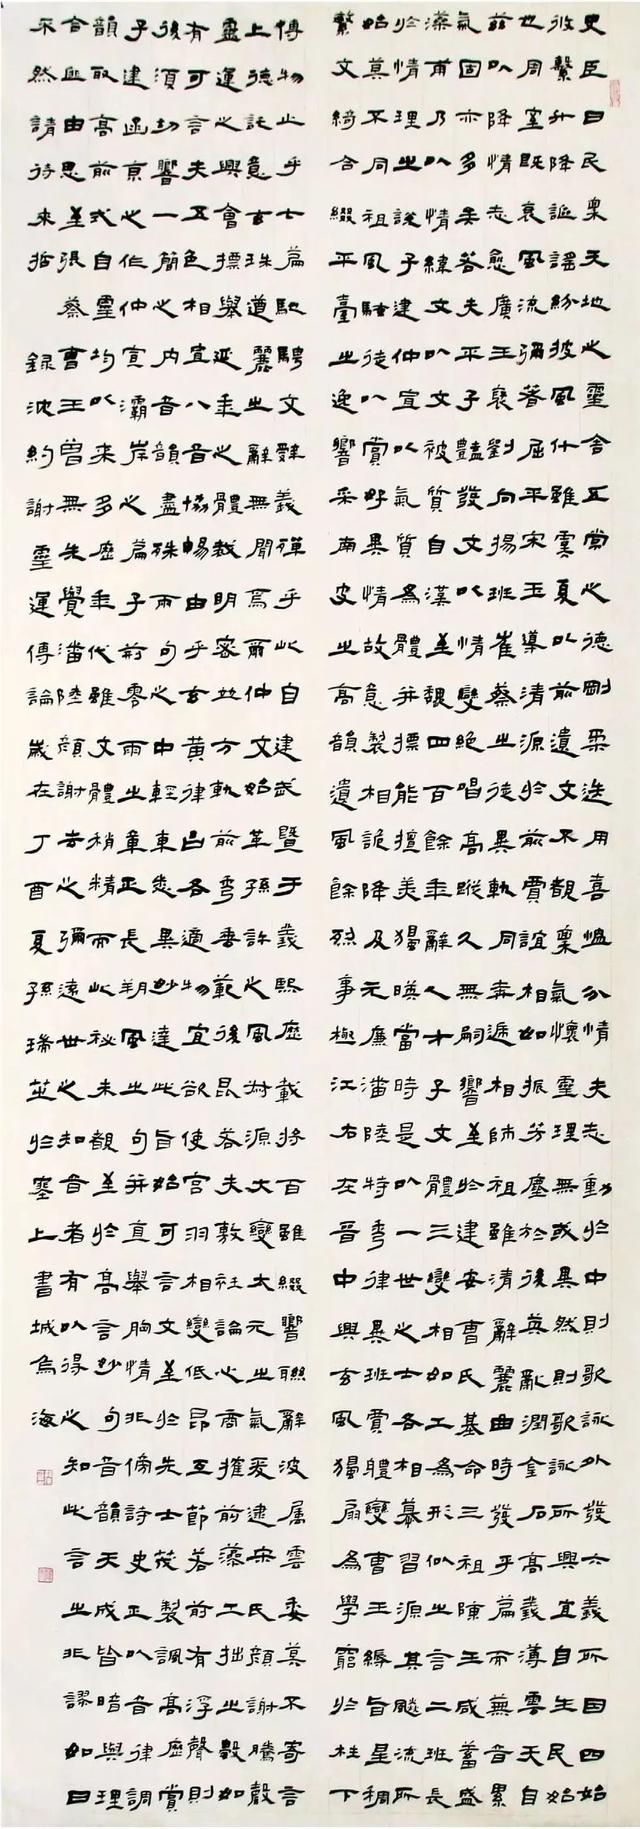 史臣曰民稟天地之靈含五常之德剛柔迭用喜愠分情夫志動於中則歌詠外發六義所因四始
攸繫升降謳謠紛披風什雖虞夏以前遺文不覩稟氣懷靈理無或異然則歌詠所興宜自生民始
也周室既衰風流彌著屈平宋玉導清源於前賈誼相如振芳塵於後英辭潤金石高義薄雲天自
茲以降情志愈廣王褒劉向揚班崔蔡之徒異軌同奔遞相師祖雖清辭麗曲時發乎篇而蕪音累
氣固亦多矣若夫平子豔發文以情變絕唱高蹤久無嗣響至於建安曹氏基命三祖陳王咸蓄盛
藻甫乃以情緯文以文被質自漢至魏四百餘年辭人才子文體三變相如工為形似之言二班長
於情理之說子建仲宣以氣質為體并標能擅美獨映當時是以一世之士各相慕習源其飈流所
始莫不同祖風騷徒以賞好異情故意製相詭降及元康潘陸特秀律異班賈體變曹王縟旨星稠
繁文綺合綴平臺之逸響采南皮之高韻遺風餘烈事極江右在晉中興玄風獨扇為學窮於柱下
博物止乎七篇馳騁文辭義殫乎此自建武暨于義熙歷載將百雖綴響聯辭波属雲委莫不寄言
上德託意玄珠遒麗之辭無聞焉爾仲文始革孫許之風叔源大變太元之氣爰逮宋氏顏謝騰聲
靈運之興會標舉延年之體裁明密並方軌前秀垂範後昆若夫敷衽論心商搉前藻工拙之數如
有可言夫五色相宣八音協暢由乎玄黃律呂各適物宜欲使宮羽相變低昂互節若前有浮聲則
後須切響一簡之內音韻盡殊兩句之中輕重悉異妙達此旨始可言文至於先士茂製諷高歷賞
子建函京之作仲宣灞岸之篇子荊零雨之章正長朔風之句并直舉胸情非傍詩史正以音律調
韻取高前式自靈均以來多歷年代雖文體稍精而此秘未覩至於高言妙句音韻天成皆暗與理
合匪由思至張蔡曹王曾無先覺潘陸顏謝去之彌遠世之知音者有以得之知此言之非謬如曰
不然請待來哲 錄沈約謝靈運傳論歲在丁酉夏孫瑞於塞上書城烏海